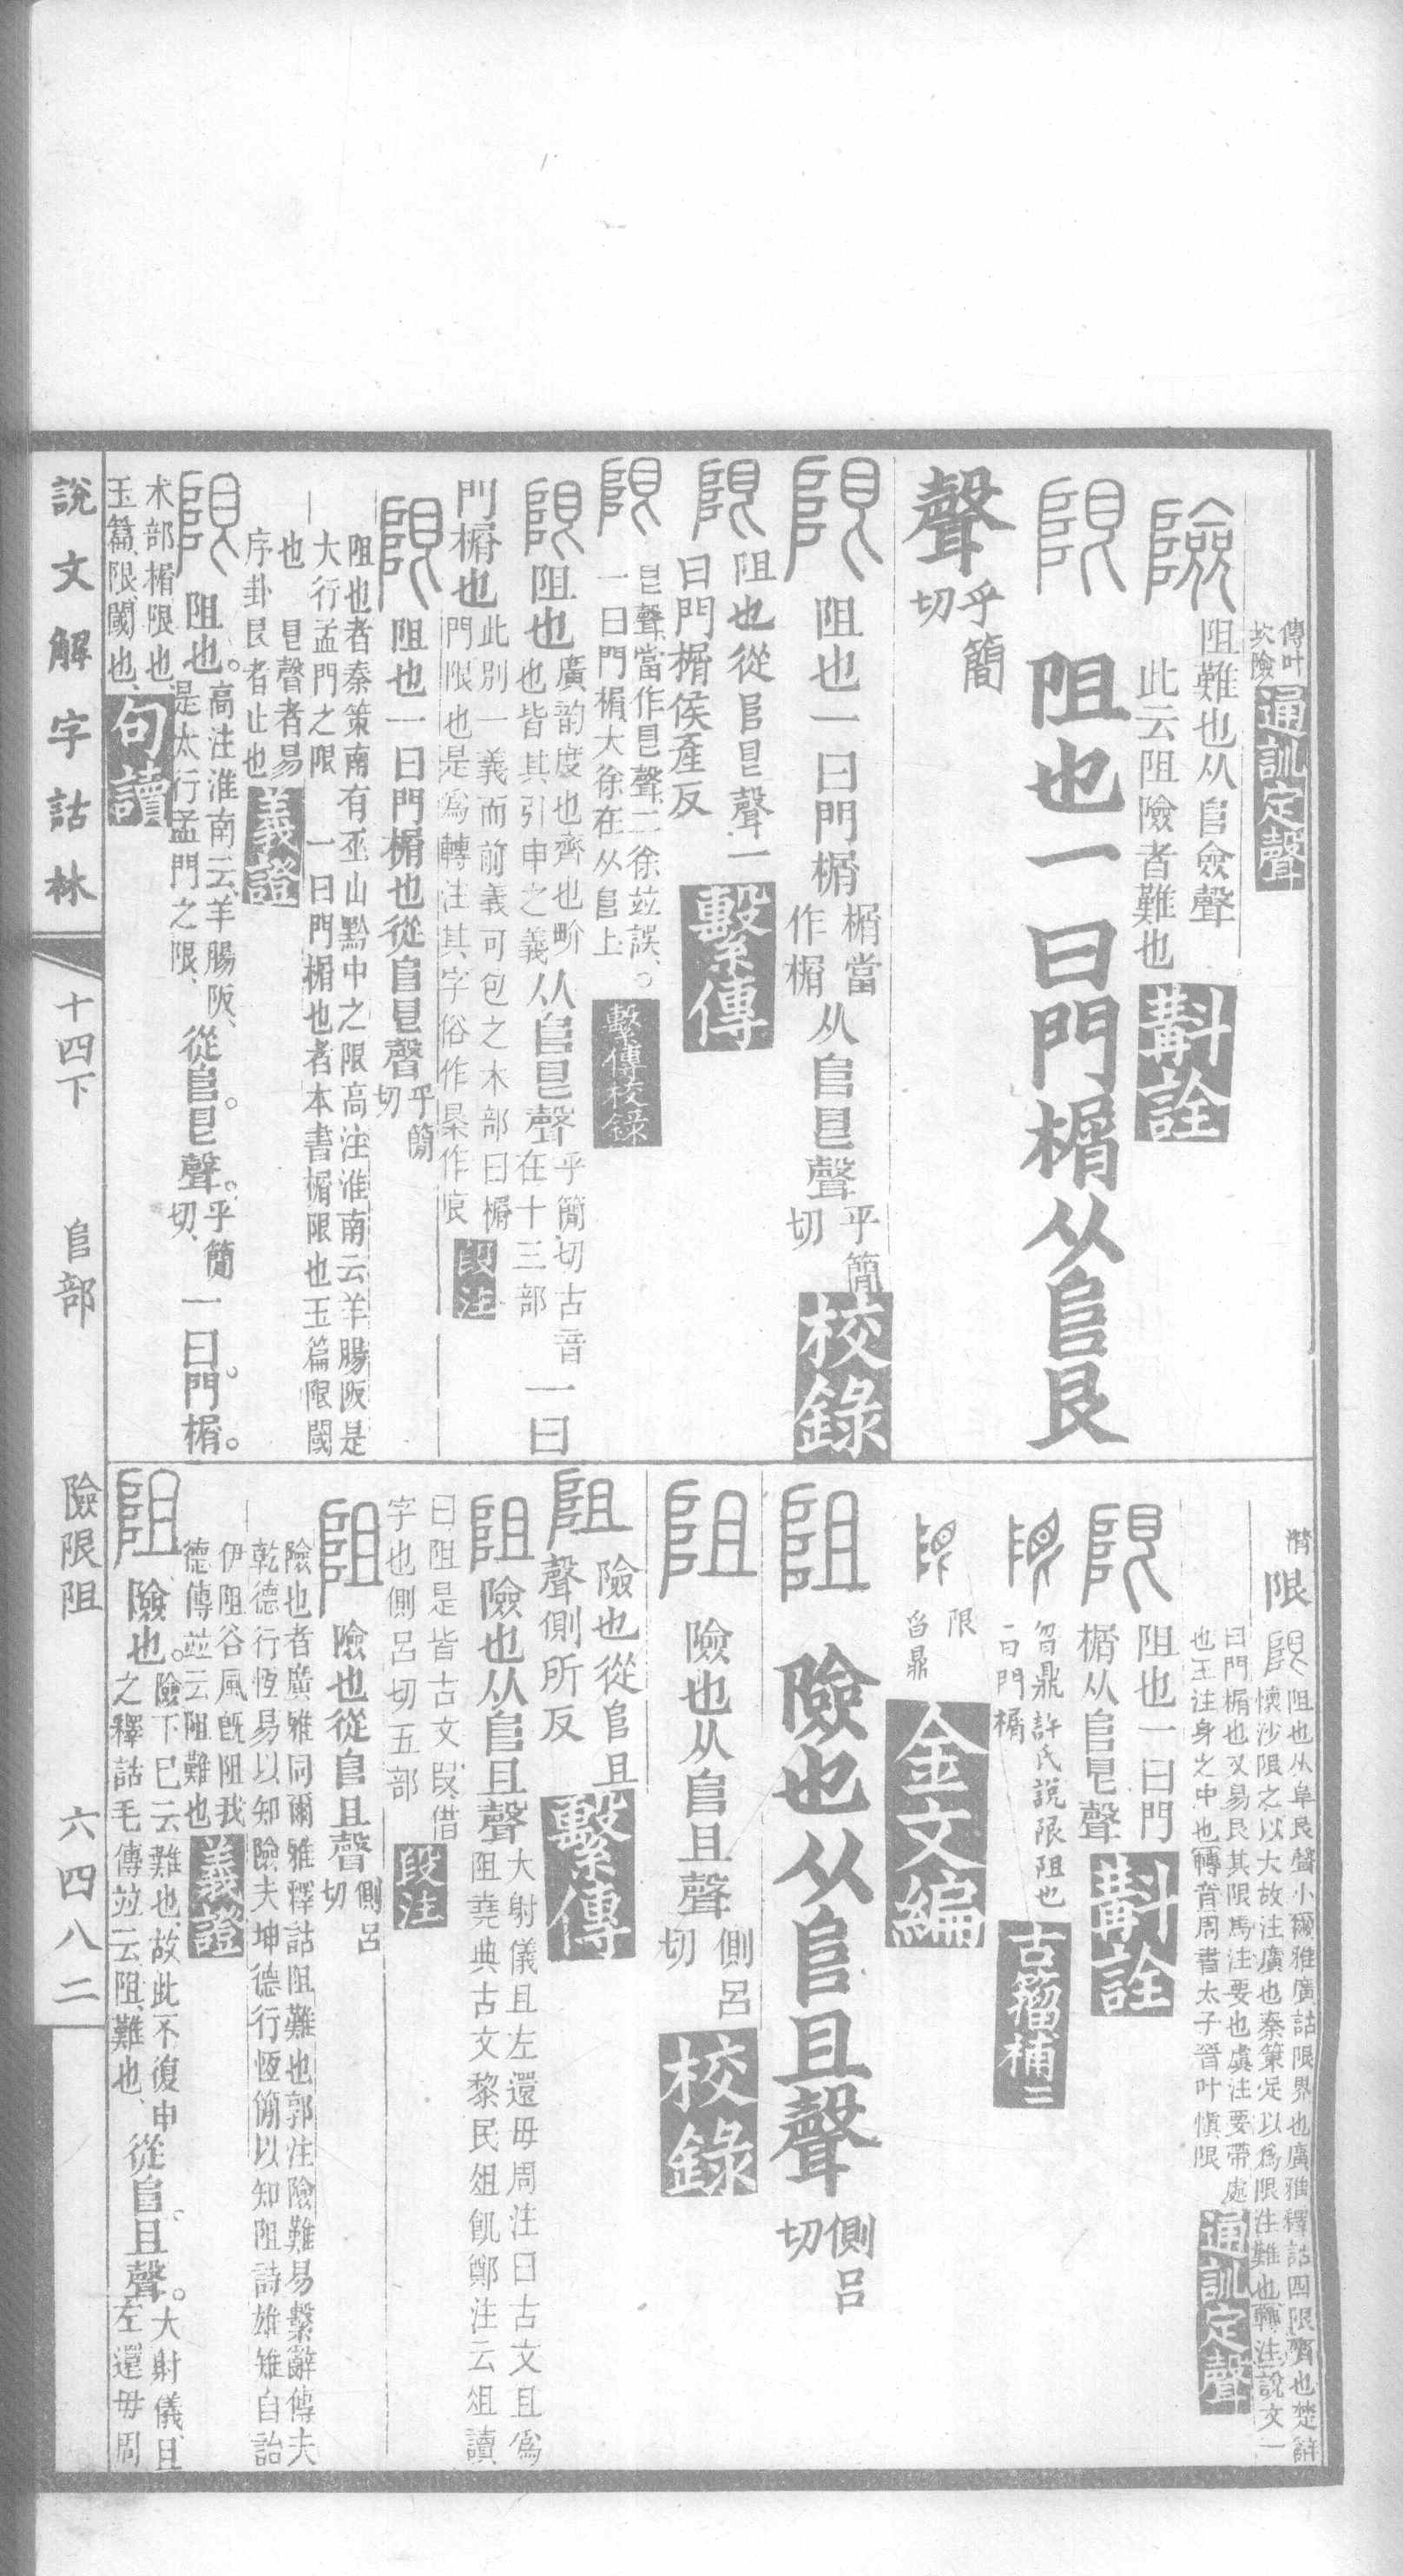 傳叶
坎險
通訓定聲
阻難也从𨸏僉聲
此云阻險者難也
斠詮
阻也一曰門榍从𨸏艮
聲
乎簡
切
阻也一曰門榍
榍當
作榍
从𨸏𥃩聲
乎簡
切
校錄
阻也從𨸏𥃩聲一
曰門榍侯產反
繫傳
𥃩聲當作𥃩聲二徐竝誤。
一曰門榍大徐在从𨸏上
繫傳校錄
阻也
廣韵度也齊也畍
也皆其引申之義
从𨸏𥃩聲
乎簡切古音
在十三部
一曰
門榍也
此別一義而前義可包之木部曰榍
門限也是爲轉注其字俗作㮓作㾗
段注
阻也一曰門榍也從𨸏𥃩聲
乎簡
切
阻也者秦策南有巫山黔中之限高注淮南云羊腸阪是
大行孟門之限 一曰門榍也者本書榍限也玉篇限閾
也 𥃩聲者易
序卦艮者止也
義證
阻也。
高注淮南云羊腸阪、
是太行孟門之限、
從𨸏。𥃩聲。
乎簡
切、
一曰。門榍。
木部榍限也、
玉篇、限閾也、
句讀
潸
限
阻也从阜艮聲小爾雅廣詁限界也廣雅釋詁四限齊也楚辭
懷沙限之以大故注廣也秦策足以爲限注難也轉注說文一
曰門榍也又易艮其限馬注要也虞注要帶處
也王注身之中也轉音周書太子晉叶愼限
通訓定聲
阻也一曰門
榍从𨸏𥃩聲
斠詮
曶鼎許氏說限阻也
一曰門榍
古籀補二
限
曶鼎
金文編
險也从𨸏且聲
側呂
切
險也从𨸏且聲
側呂
切
校錄
險也從𨸏且
聲側所反
繫傳
險也从𨸏且聲
大射儀且左還毋周注曰古文且爲
阻堯典古文黎民俎飢鄭注云俎讀
曰阻是皆古文叚借
字也側呂切五部
段注
險也從𨸏且聲
側呂
切
險也者廣雅同爾雅釋詁阻難也郭注險難易繫辭傳夫
乾德行恆易以知險夫坤德行恆簡以知阻詩雄雉自詒
伊阻谷風旣阻我
德傳竝云阻難也
義證
險也。
險下已云難也、故此不復申
之釋詁毛傳竝云阻、難也、
從𨸏。且聲。
大射儀、且
左還毋周
說文解字詁林
十四下
𨸏部
險限阻
六四八二